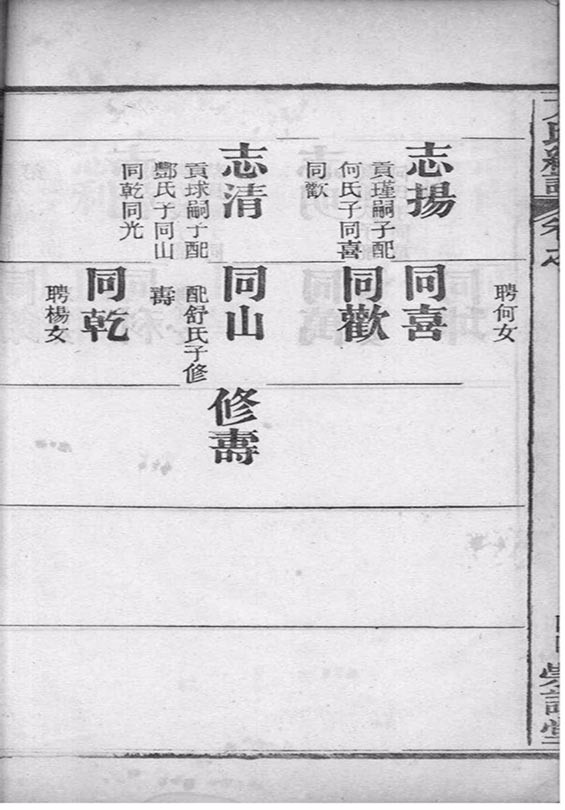 聘何女
志揚
貢瑾嗣子配
何氏子同喜
同歡
同喜
同歡
志清
貢球嗣子配
酆氏子同山
同乾同光
同山
配舒氏子修
壽
修壽
同乾
聘楊女